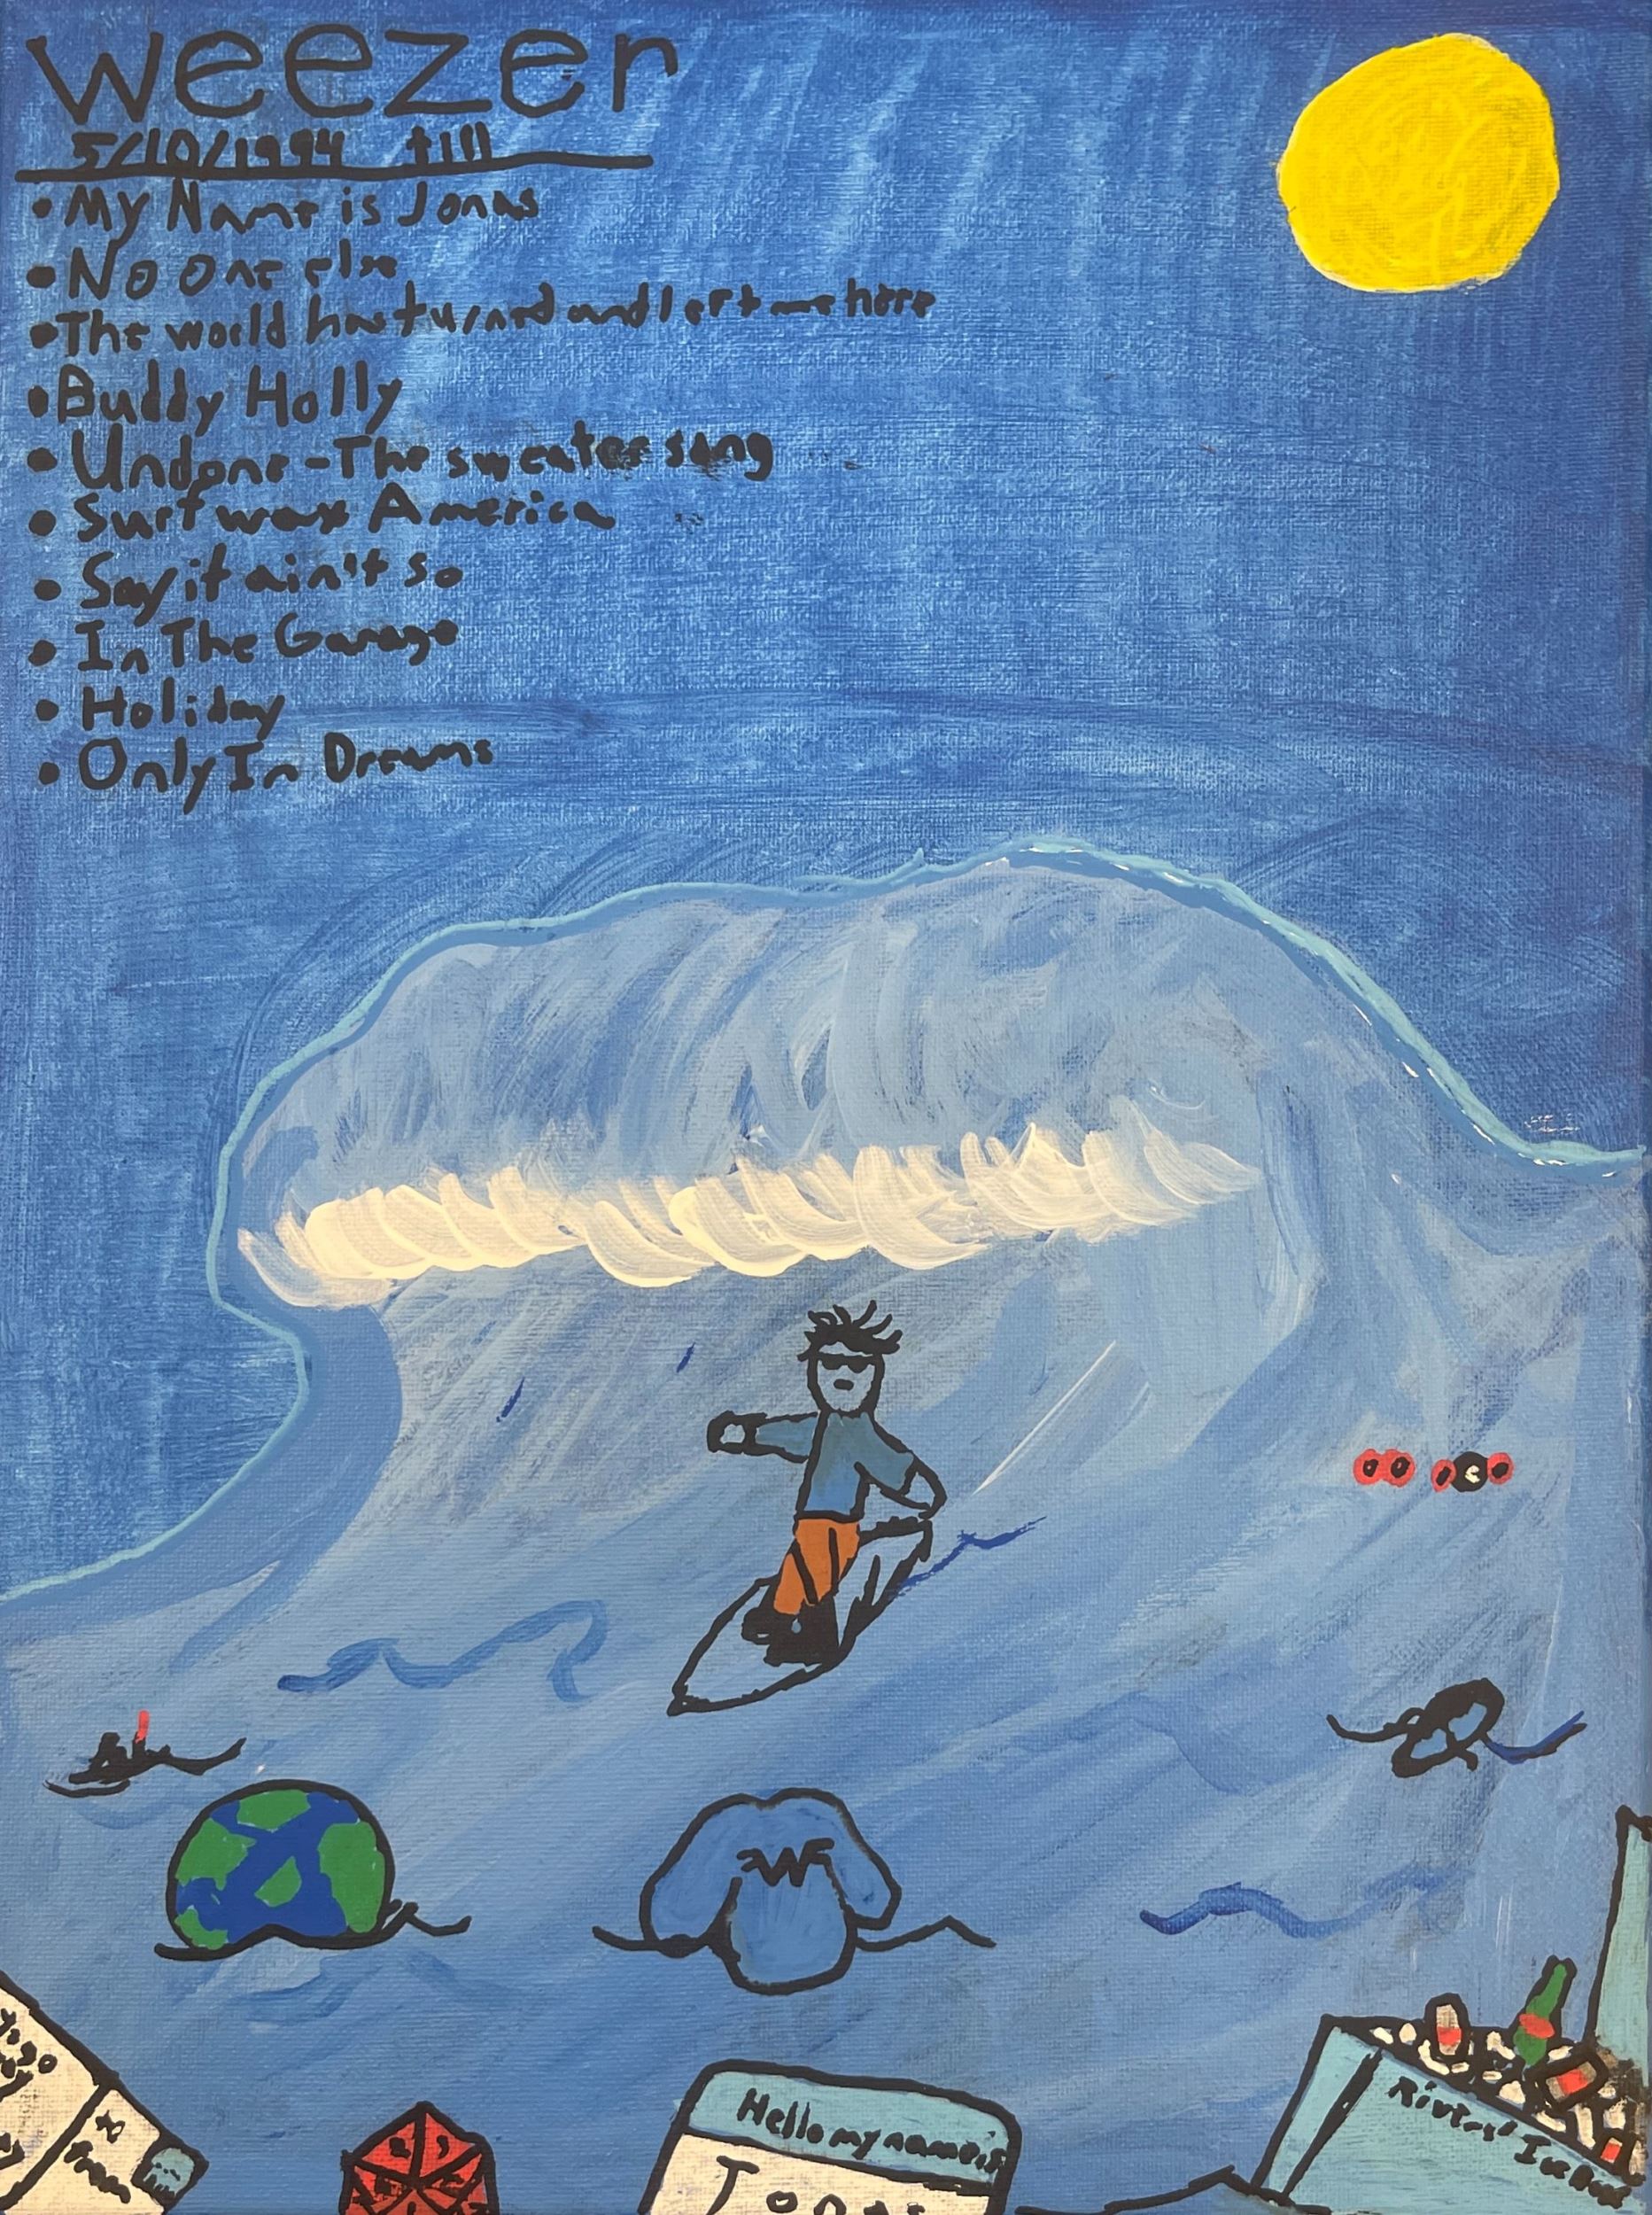 weezer
5/10/1994 till
• My Name is Jonas
• No one else
• The world has turned and left me here
• Buddy Holly
• Undone - The sweater song
• Surf wax America
• Say it ain't so
• In The Garage
• Holiday
• Only In Dreams
W
to
from
Hello my name is
Jonas
Rivers'